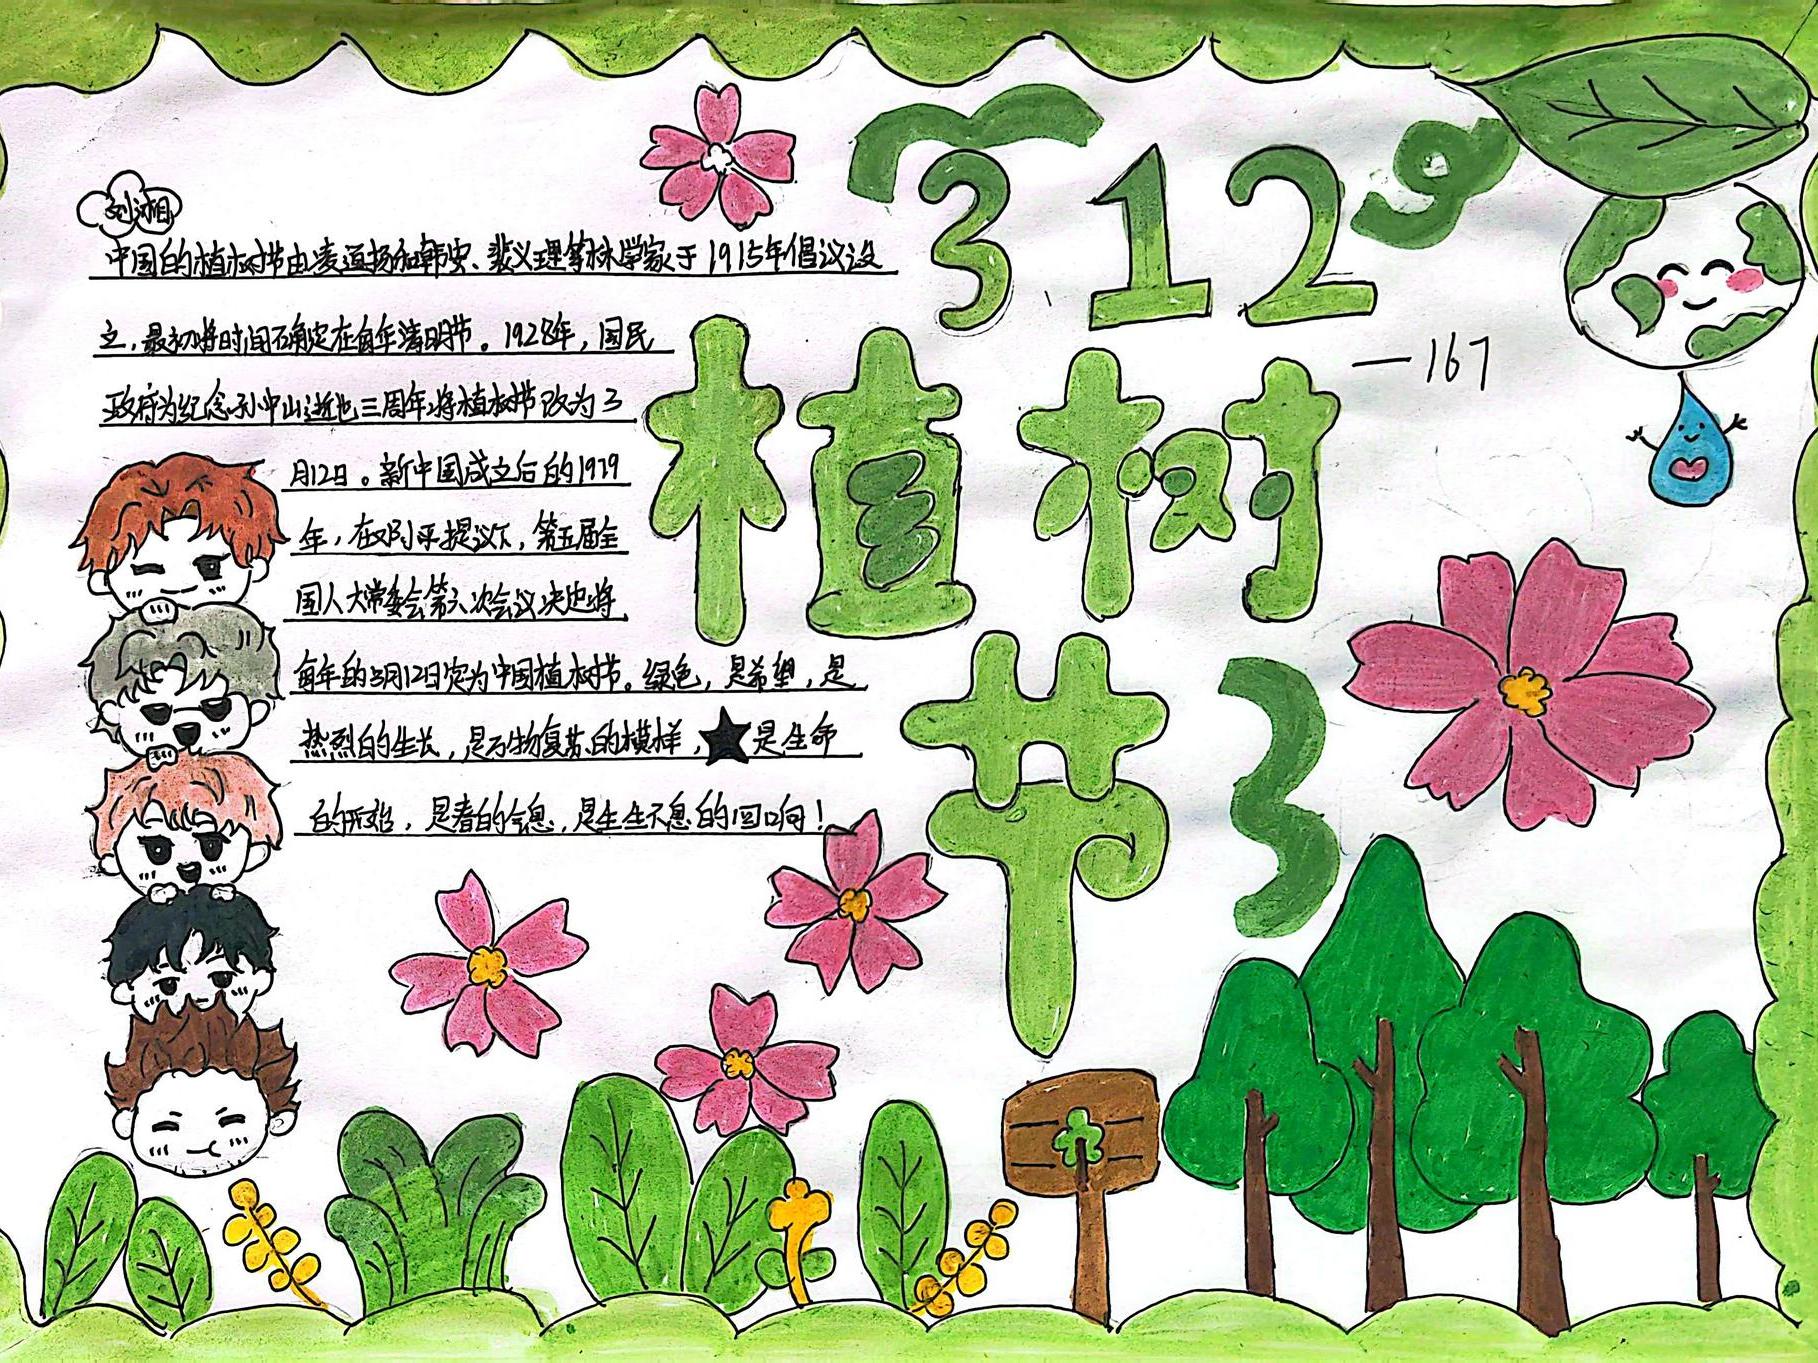 312
植树
节
—167
中国的植树节由凌道扬和韩安、裴义理等林学家于1915年倡议设
立,最初将时间确定在每年清明节。1928年,国民
政府为纪念孙中山逝世三周年,将植树节改为3
月12日。新中国成立后的1979
年,在邓小平提议下,第五届全
国人大常委会第六次会议决定将
每年的3月12日定为中国植树节。绿色,是希望,是
热烈的生长,是万物复苏的模样,★是生命
的开始,是春的气息,是生生不息的回响!